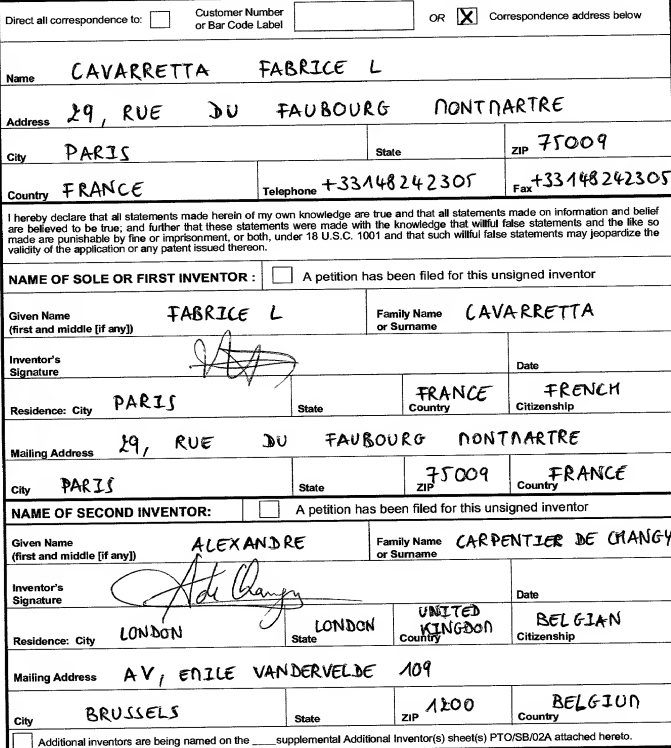 Direct all correspondence to: Customer Number or Bar Code Label OR X Correspondence address below
Name CAVARRETTA FABRICE L
Address 29, RUE DU FAUBOURG MONTMARTRE
City PARIS State ZIP 75009
Country FRANCE Telephone +33148242305 Fax +33148242305
I hereby declare that all statements made herein of my own knowledge are true and that all statements made on information and belief
are believed to be true; and further that these statements were made with the knowledge that willful false statements and the like so
made are punishable by fine or imprisonment, or both, under 18 U.S.C. 1001 and that such willful false statements may jeopardize the
validity of the application or any patent issued thereon.
NAME OF SOLE OR FIRST INVENTOR : A petition has been filed for this unsigned inventor
Given Name (first and middle [if any]) FABRICE L Family Name or Surname CAVARRETTA
Inventor's Signature Date
Residence: City PARIS State Country FRANCE Citizenship FRENCH
Mailing Address 29, RUE DU FAUBOURG MONTMARTRE
City PARIS State ZIP 75009 Country FRANCE
NAME OF SECOND INVENTOR: A petition has been filed for this unsigned inventor
Given Name (first and middle [if any]) ALEXANDRE Family Name or Surname CARPENTIER DE CHANGY
Inventor's Signature A de Changy Date
Residence: City LONDON State LONDON Country UNITED KINGDOM Citizenship BELGIAN
Mailing Address AV, EMILE VANDERVELDE 109
City BRUSSELS State ZIP 1200 Country BELGIUM
Additional inventors are being named on the ____supplemental Additional Inventor(s) sheet(s) PTO/SB/02A attached hereto.